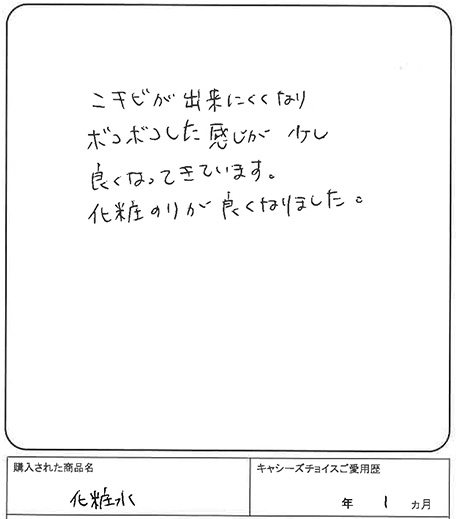 ニキビが出来にくくなり
ボコボコした感じが少し
良くなってきています。
化粧のりが良くなりました。
購入された商品名
キャシーズチョイスご愛用歴
化粧水
年 1 カ月